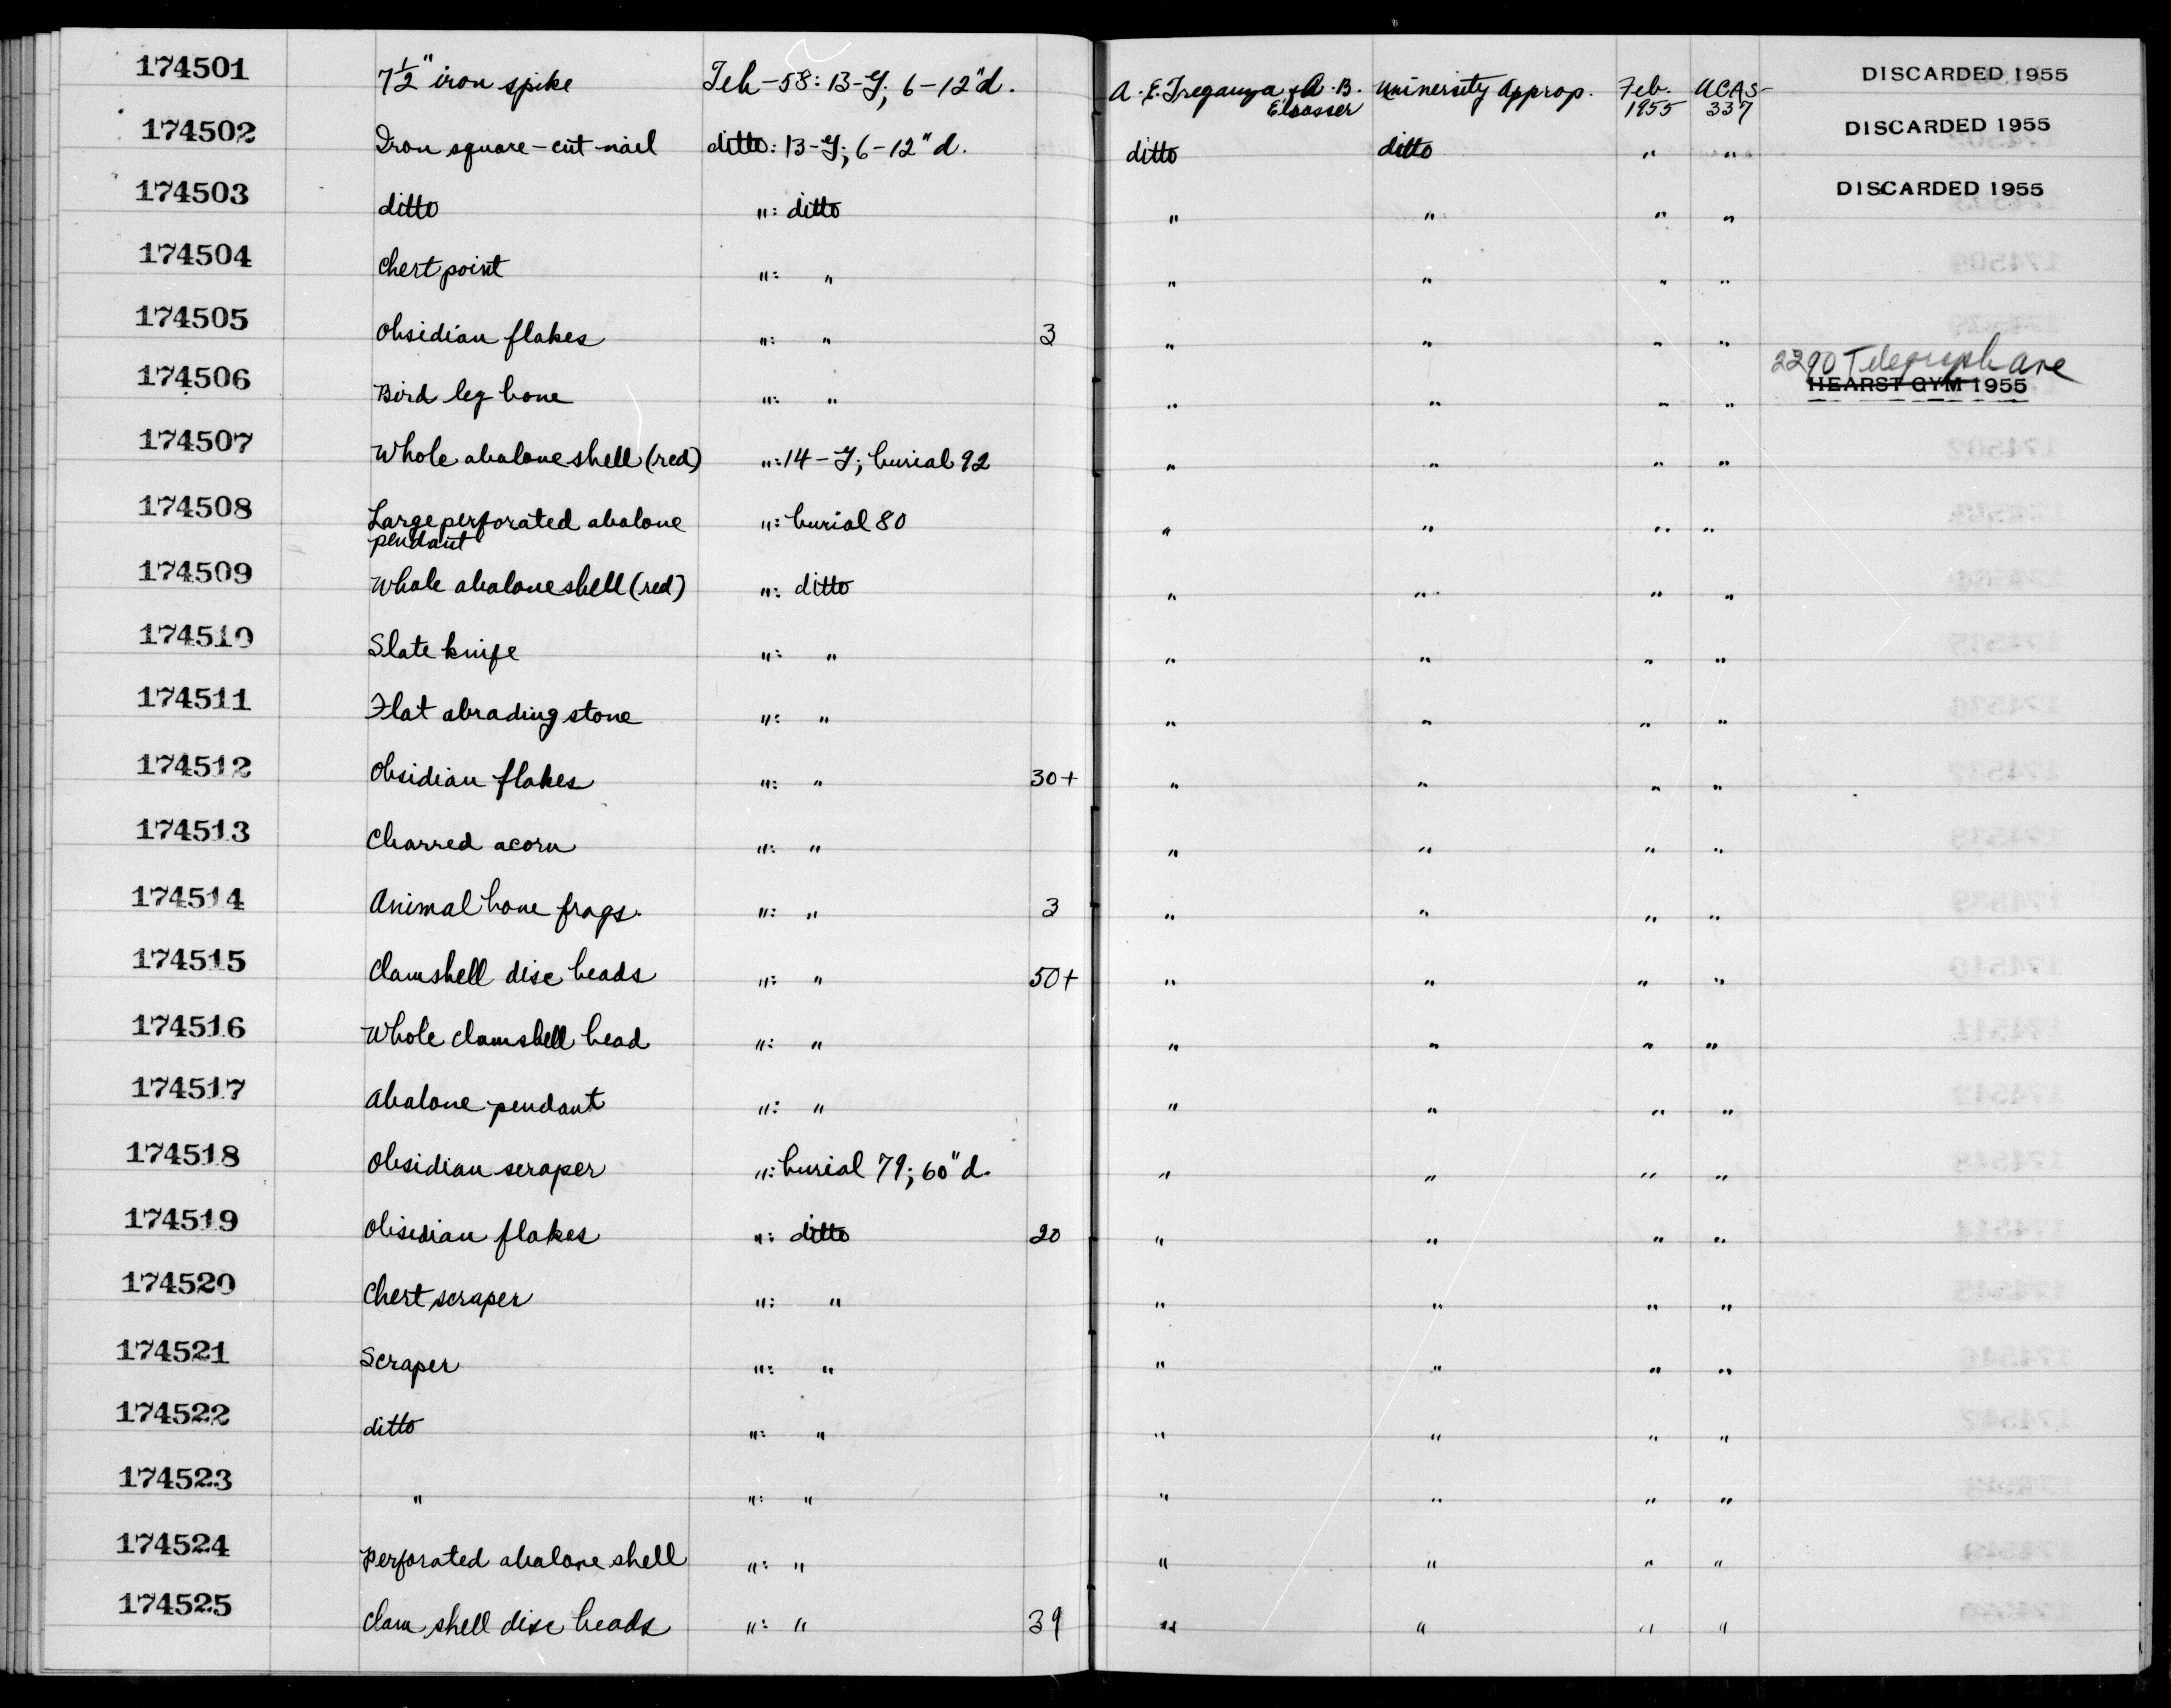 174501 7½" iron spike Teh-58: 13-Y; 6-12"d. A. E. Treganza & A. B. Elsasser University Approp. Feb. 1955 UCAS-337 DISCARDED 1955
174502 Iron square-cut nail ditto: 13-Y; 6-12"d. ditto ditto " " DISCARDED 1955
174503 ditto ": ditto " " " " DISCARDED 1955
174504 Chert point ": " " " " "
174505 Obsidian flakes ": " 3 " " " "
174506 Bird leg bone ": " " " " " 2290 Telegraph Ave HEARST GYM 1955
174507 Whole abalone shell (red) ": 14-Y; burial 92 " " " "
174508 Large perforated abalone pendant ": burial 80 " " " "
174509 Whole abalone shell (red) ": ditto " " " "
174510 Slate knife ": " " " " "
174511 Flat abrading stone ": " " " " "
174512 Obsidian flakes ": " 30+ " " " "
174513 Charred acorn ": " " " " "
174514 Animal bone frags. ": " 3 " " " "
174515 Clamshell disc beads ": " 50+ " " " "
174516 Whole clamshell bead ": " " " " "
174517 Abalone pendant ": " " " " "
174518 Obsidian scraper ": burial 79; 60"d. " " " "
174519 Obsidian flakes ": ditto 20 " " " "
174520 Chert scraper ": " " " " "
174521 Scraper ": " " " " "
174522 ditto ": " " " " "
174523 " ": " " " " "
174524 Perforated abalone shell ": " " " " "
174525 Clam shell disc beads ": " 39 " " " "